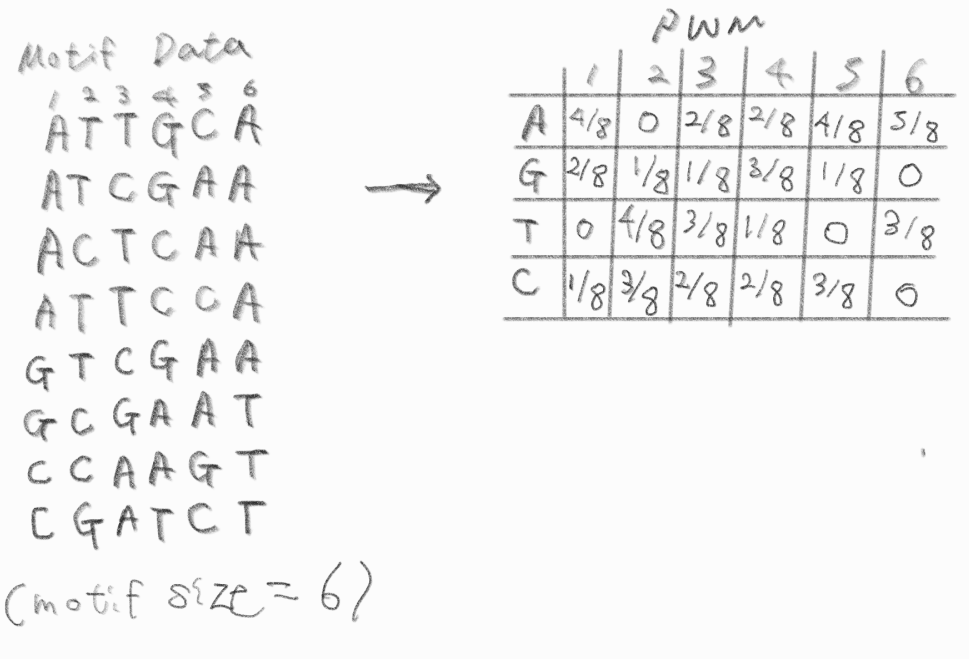 Motif Data
1 2 3 4 5 6
A T T G C A
A T C G A A
A C T C A A
A T T C C A
G T C G A A
G C G A A T
C C A A G T
C G A T C T
(motif size = 6)
PWM
1 2 3 4 5 6
A 4/8 0 2/8 2/8 4/8 5/8
G 2/8 1/8 1/8 3/8 1/8 0
T 0 4/8 3/8 1/8 0 3/8
C 1/8 3/8 2/8 2/8 3/8 0